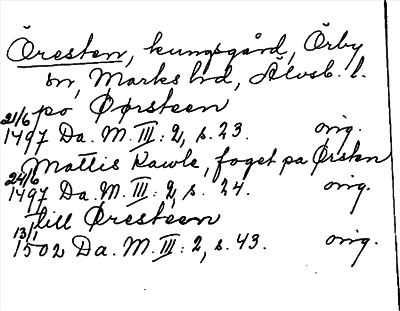 Öresten, kungsgård, Örby
sn, Marks hd, Älvsb. l.
po Øørsteen
21/6 1497 Da. M. III: 2, s. 23. orig.
Mattis Kawle, foget pa Ørsten
24/6 1497 Da. M. III: 2, s. 24. orig.
till Øresteen
13/1 1502 Da. M. III: 2, s. 43. orig.